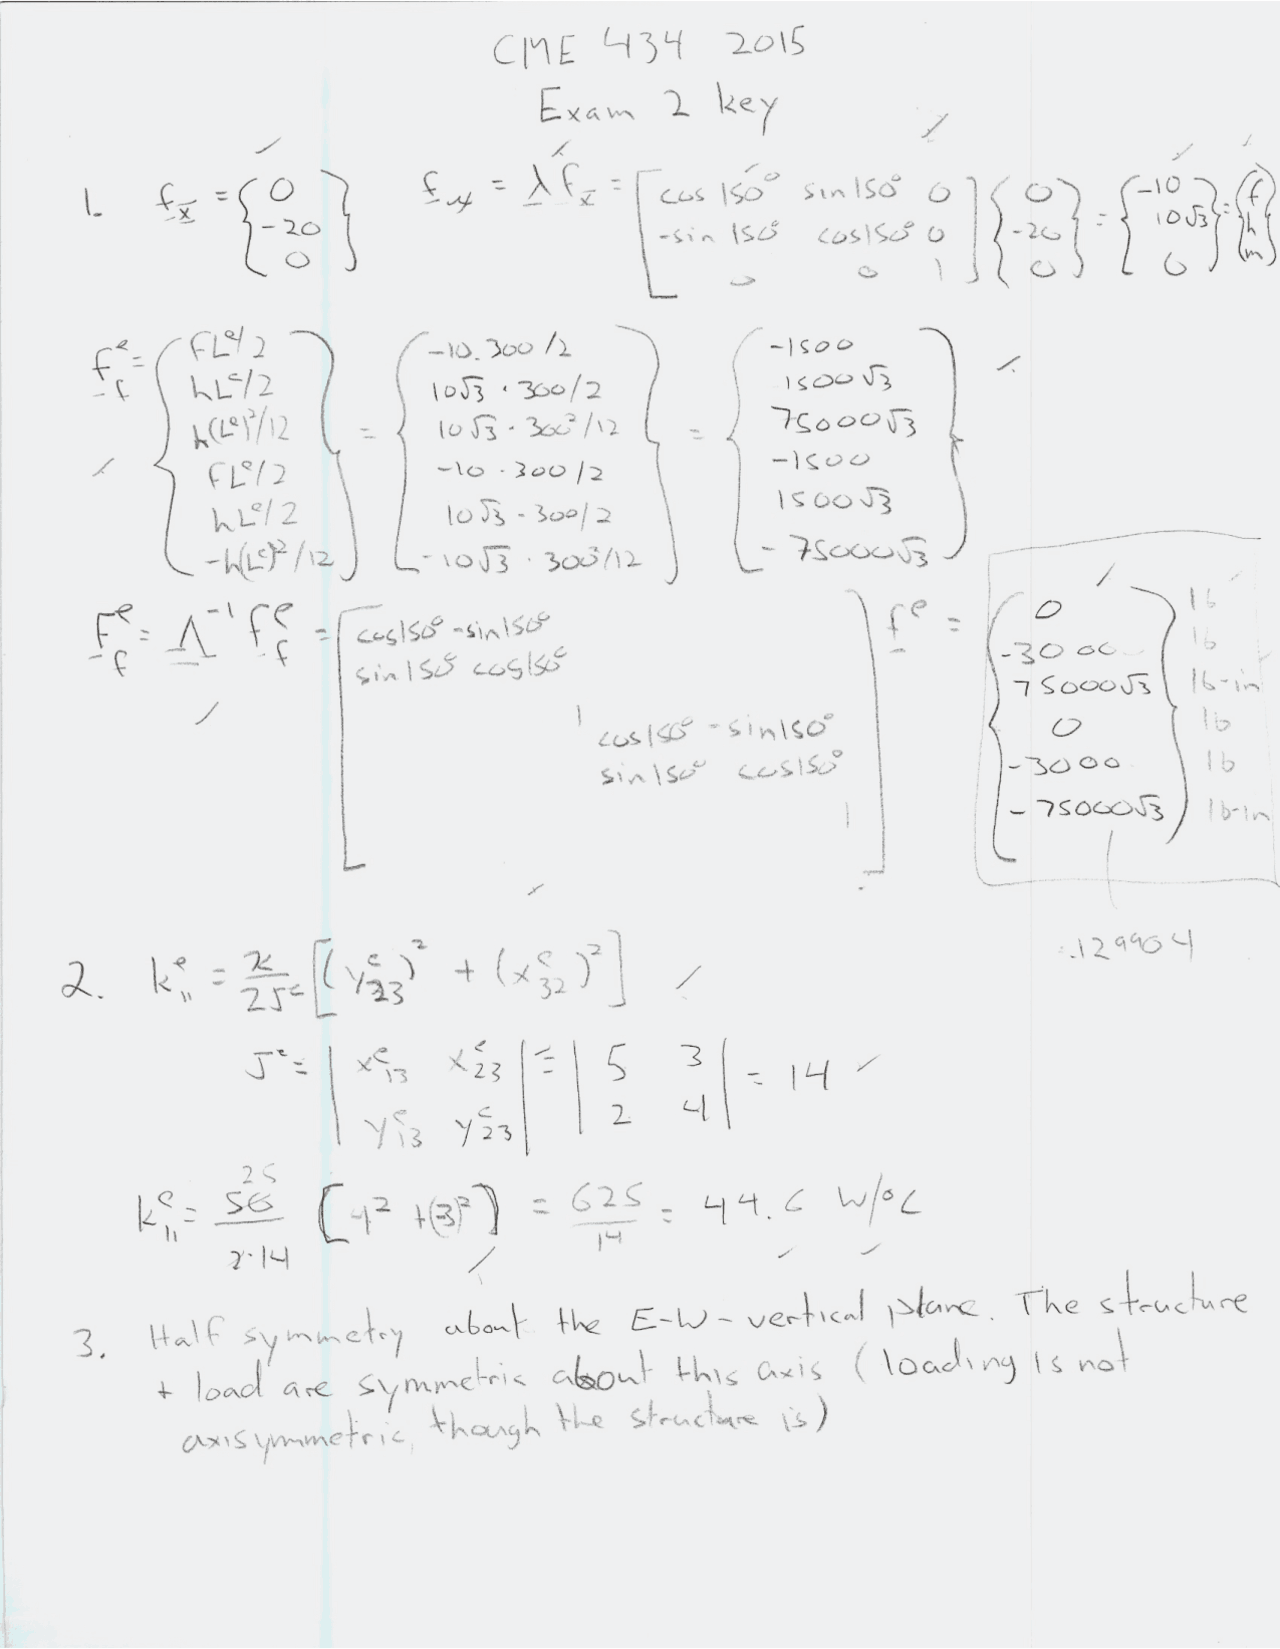 CME 434 2015
Exam 2 key
1. f_x̄ = {0, -20, 0} f_x = λ f_x̄ = [cos 150° sin 150° 0; -sin 150° cos 150° 0; 0 0 1] {0, -20, 0} = {-10, 10√3, 0} = {f, h, m}
f_f^e = {fL^e/2, hL^e/2, h(L^e)²/12, fL^e/2, hL^e/2, -h(L^e)²/12} = {-10·300/2, 10√3·300/2, 10√3·300²/12, -10·300/2, 10√3·300/2, -10√3·300²/12} = {-1500, 1500√3, 75000√3, -1500, 1500√3, -75000√3}
F_f^e = Λ^-1 f_f^e = [cos150° -sin150°; sin150° cos150°; 1; cos150° -sin150°; sin150° cos150°; 1] f^e = {0, -3000, 75000√3, 0, -3000, -75000√3} lb lb lb-in lb lb lb-in
129904
2. k^e_11 = κ/2J^e [(y^e_23)² + (x^e_32)²]
J^e = |x^e_13 x^e_23; y^e_13 y^e_23| = |5 3; 2 4| = 14
25
k^e_11 = 50/2·14 [4² + (3)²] = 625/14 = 44.6 W/°C
3. Half symmetry about the E-W-vertical plane. The structure
+ load are symmetric about this axis (loading is not
axisymmetric, though the structure is)